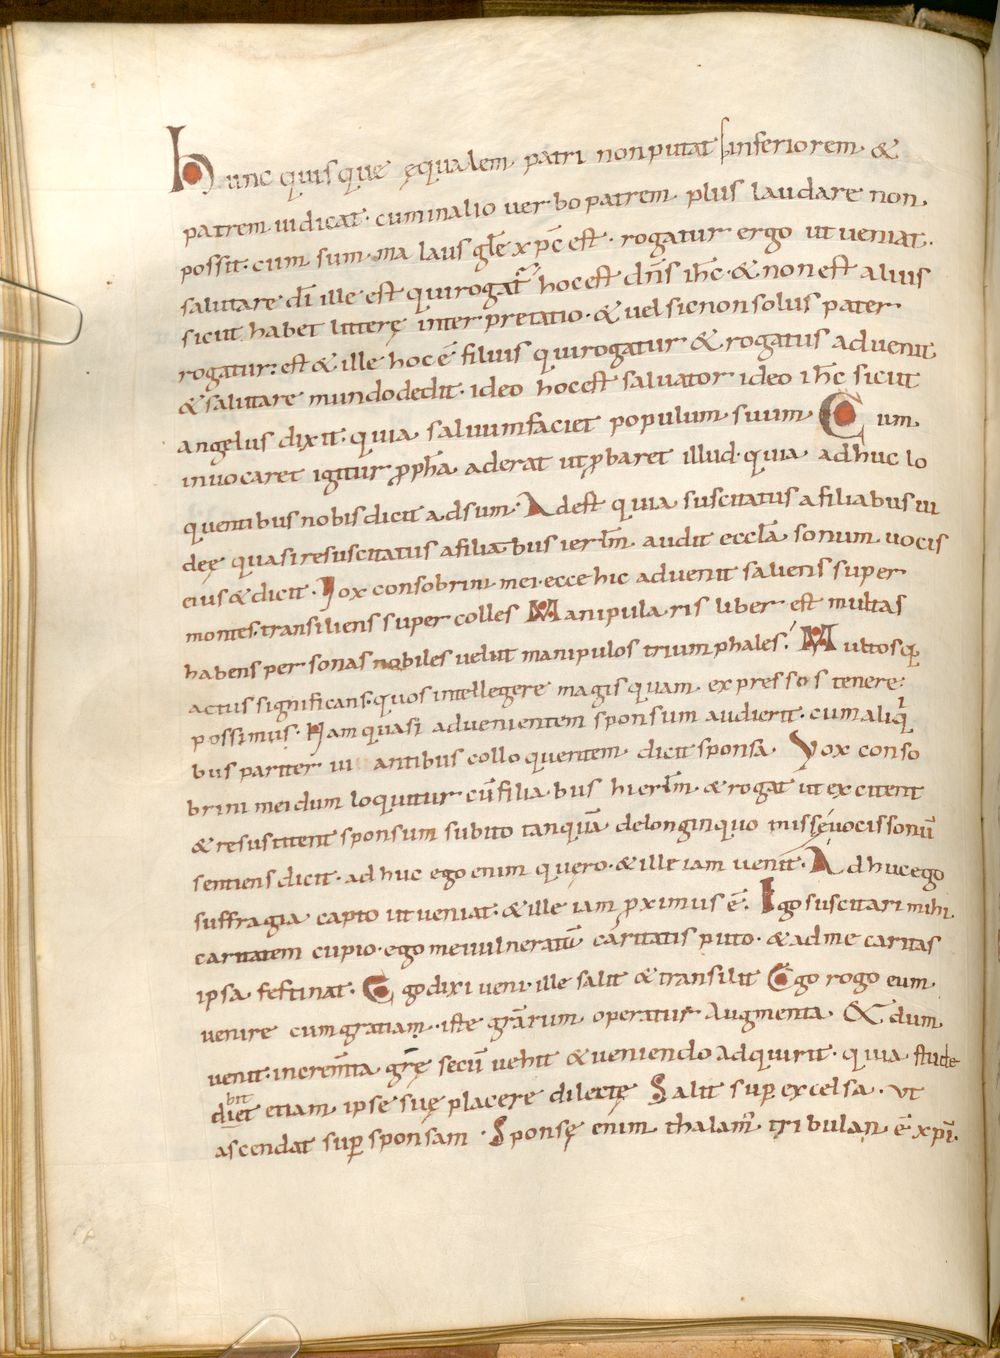 Hunc quisque ęqualem patri non putat inferiorem &
patrem iudicat. cum in alio uerbo patrem plus laudare non
possit. cum summa laus glę xpc est. rogatur ergo ut ueniat.
salutare di ille est qui rogatur hoc est dns ihc. & non est alius
sicut habet litterę interpretatio. & uel sic non solus pater
rogatur: est & ille hoc ē filius qui rogatur & rogatus aduenit
& salutare mundo dedit. ideo hoc est saluator ideo ihc sicut
angelus dixit. quia saluum faciet populum suum Cum
inuocaret igitur ppha aderat ut pbaret illud. quia adhuc lo
quentibus nobis dicit adsum. Adest quia suscitatus a filiabus iu
deę quasi resuscitatus a filiabus ierlm audit eccla sonum uocis
eius & dicit. Uox consobrini mei. ecce hic aduenit saliens super
montes. transiliens super colles Manipularis liber est multas
habens personas nobiles uelut manipulos triumphales. Multosq;
actus significans. quos intellegere magis quam expressos tenere
possimus. Nam quasi aduenientem sponsum audierit. cum aliq
bus pariter ui antibus colloquentem dicit sponsa. Vox conso
brini mei dum loquitur cū filiabus hierlm & rogat ut excitent
& resustitent sponsum subito tanquā de longinquo missę uocis sonū
sentiens dicit. adhuc ego enim quęro. & ille iam uenit. Adhuc ego
suffragia capto ut ueniat. & ille iam pximus ē. Ego suscitari mihi
caritatem cupio. ego me uulneratū caritatis puto. & ad me caritas
ipsa festinat. Ego dixi ueni. ille salit & transilit Ego rogo eum
uenire cum gratiam. iste grārum operatur augmenta. & dum
uenit. incremta grę secū uehit & ueniendo adquirit. quia stude
bit
diet etiam ipse suę placere dilectę Salit sup excelsa. ut
ascendat sup sponsam. Sponsę enim thalam tribulan ē xpi.